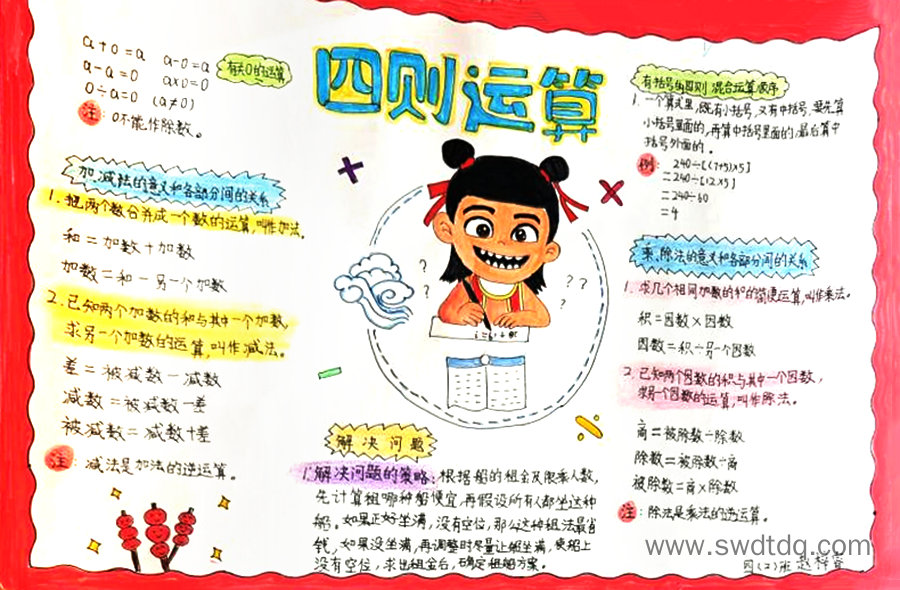 四则运算
a+0=a a-0=a
a-a=0 a×0=0
0÷a=0 (a≠0)
有关0的运算
注:0不能作除数。
加、减法的意义和各部分间的关系
1.把两个数合并成一个数的运算,叫作加法。
和=加数+加数
加数=和-另一个加数
2.已知两个加数的和与其中一个加数,
求另一个加数的运算,叫作减法。
差=被减数-减数
减数=被减数-差
被减数=减数+差
注:减法是加法的逆运算。
? ? ? ? ?
解决问题
1.解决问题的策略:根据船的租金及限乘人数,
先计算租哪种船便宜,再假设所有人都坐这种
船。如果正好坐满,没有空位,那么这种租法最省
钱,如果没坐满,再调整时尽量让船坐满,使船上
没有空位,求出租金后,确定租船方案。
有括号的四则混合运算顺序
1.一个算式里,既有小括号,又有中括号,要先算
小括号里面的,再算中括号里面的,最后算中
括号外面的。
例: 240÷[(7+5)×5]
=240÷[12×5]
=240÷60
=4
乘、除法的意义和各部分间的关系
1.求几个相同加数的和的简便运算,叫作乘法。
积=因数×因数
因数=积÷另一个因数
2.已知两个因数的积与其中一个因数,
求另一个因数的运算,叫作除法。
商=被除数÷除数
除数=被除数÷商
被除数=商×除数
注:除法是乘法的逆运算。
www.swdtdq.com
四(2)班 赵梓萱